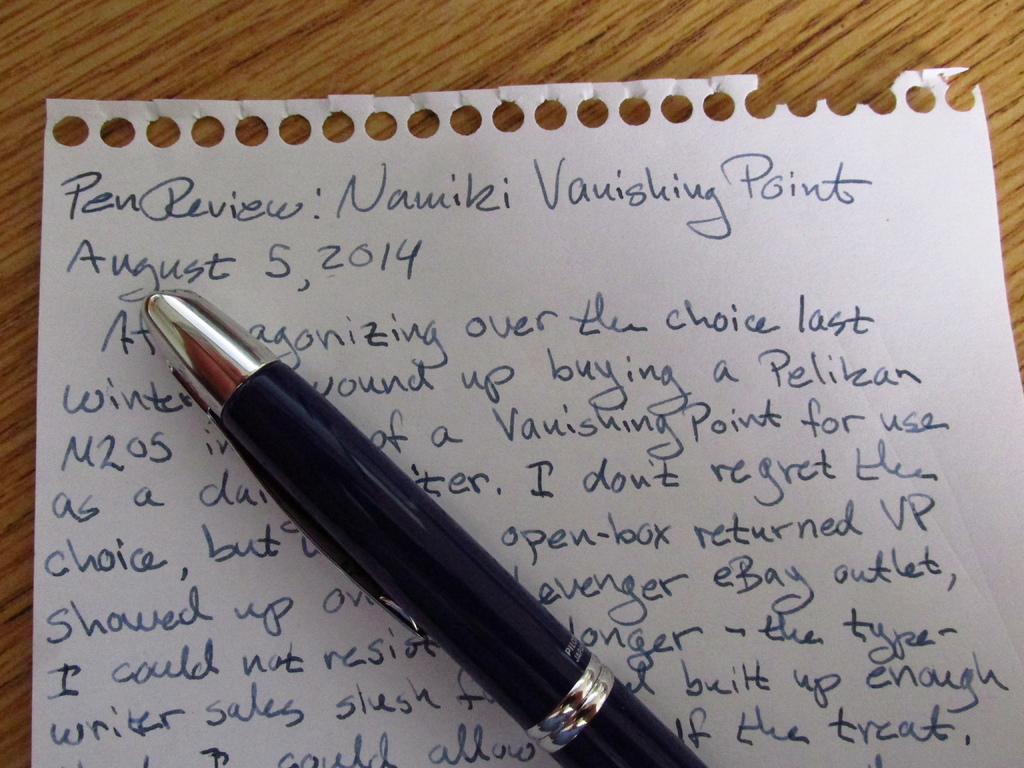 Pen Review: Namiki Vanishing Point
August 5, 2014
agonizing over the choice last
wound up buying a Pelikan
M205 of a Vanishing Point for use
as a I don't regret the
choice, but open-box returned VP
showed up on eBay outlet,
I could not resist longer - the type-
writer sales slush built up enough
I could allow the treat.
PILOT
JAPAN